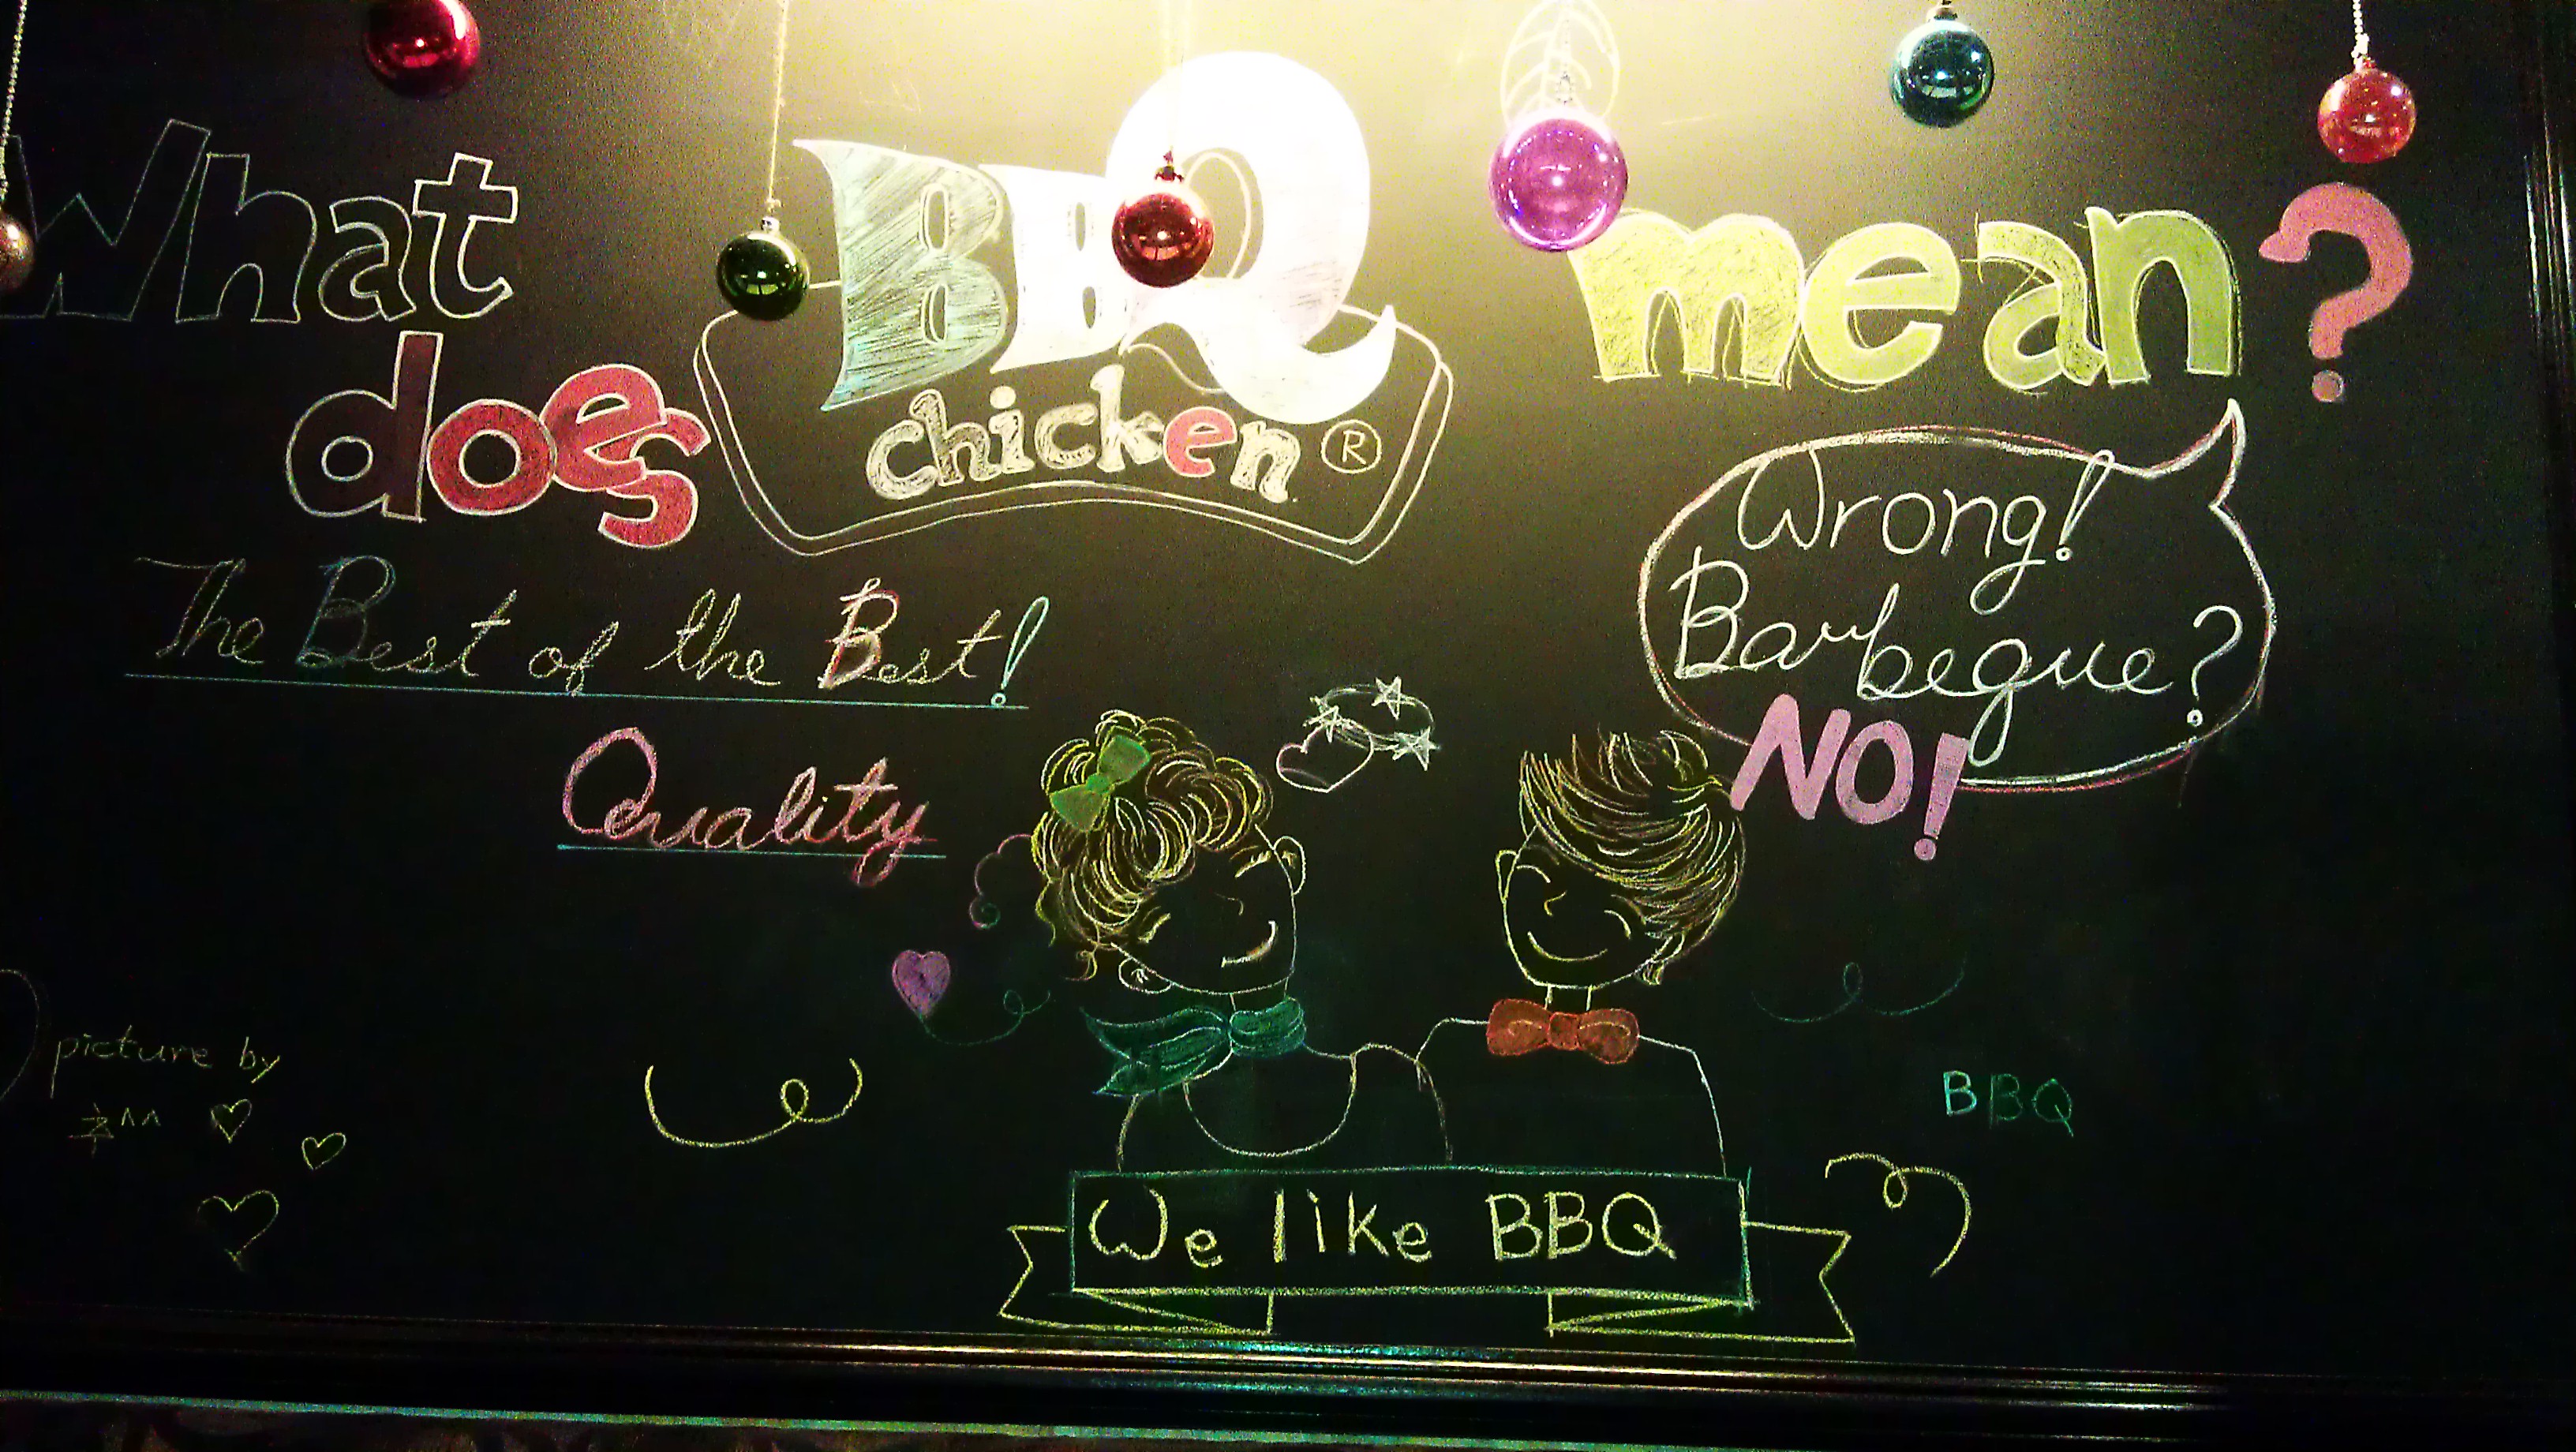 What
does
BBQ
chicken ®
mean?
The Best of the Best!
Quality
Wrong!
Barbeque?
NO!
picture by
BBQ
We like BBQ